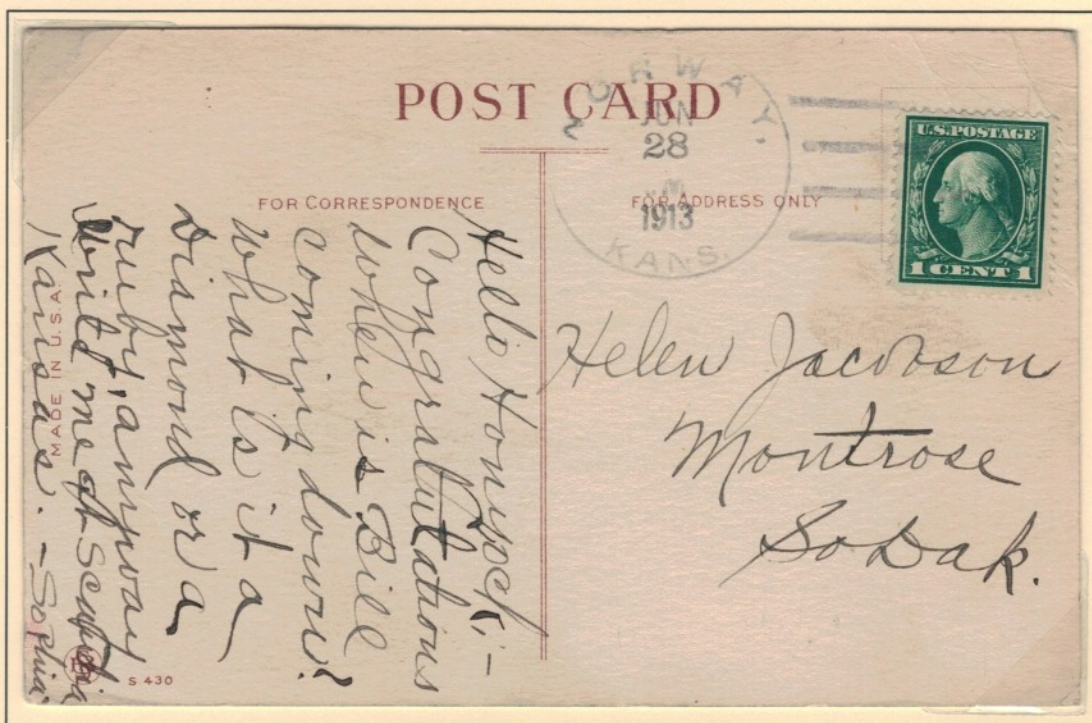 POST CARD
NORWAY.
JUN
28
M
1913
KANS.
U.S. POSTAGE
1 CENT 1
FOR CORRESPONDENCE
FOR ADDRESS ONLY
Hello
Congratulations
when is Bill
coming down?
what is it a
Diamond or a
ruby, anyway
me at Scandia
Kansas. - Sophia.
Helen Jacobson
Montrose
So Dak.
MADE IN U.S.A.
S 430